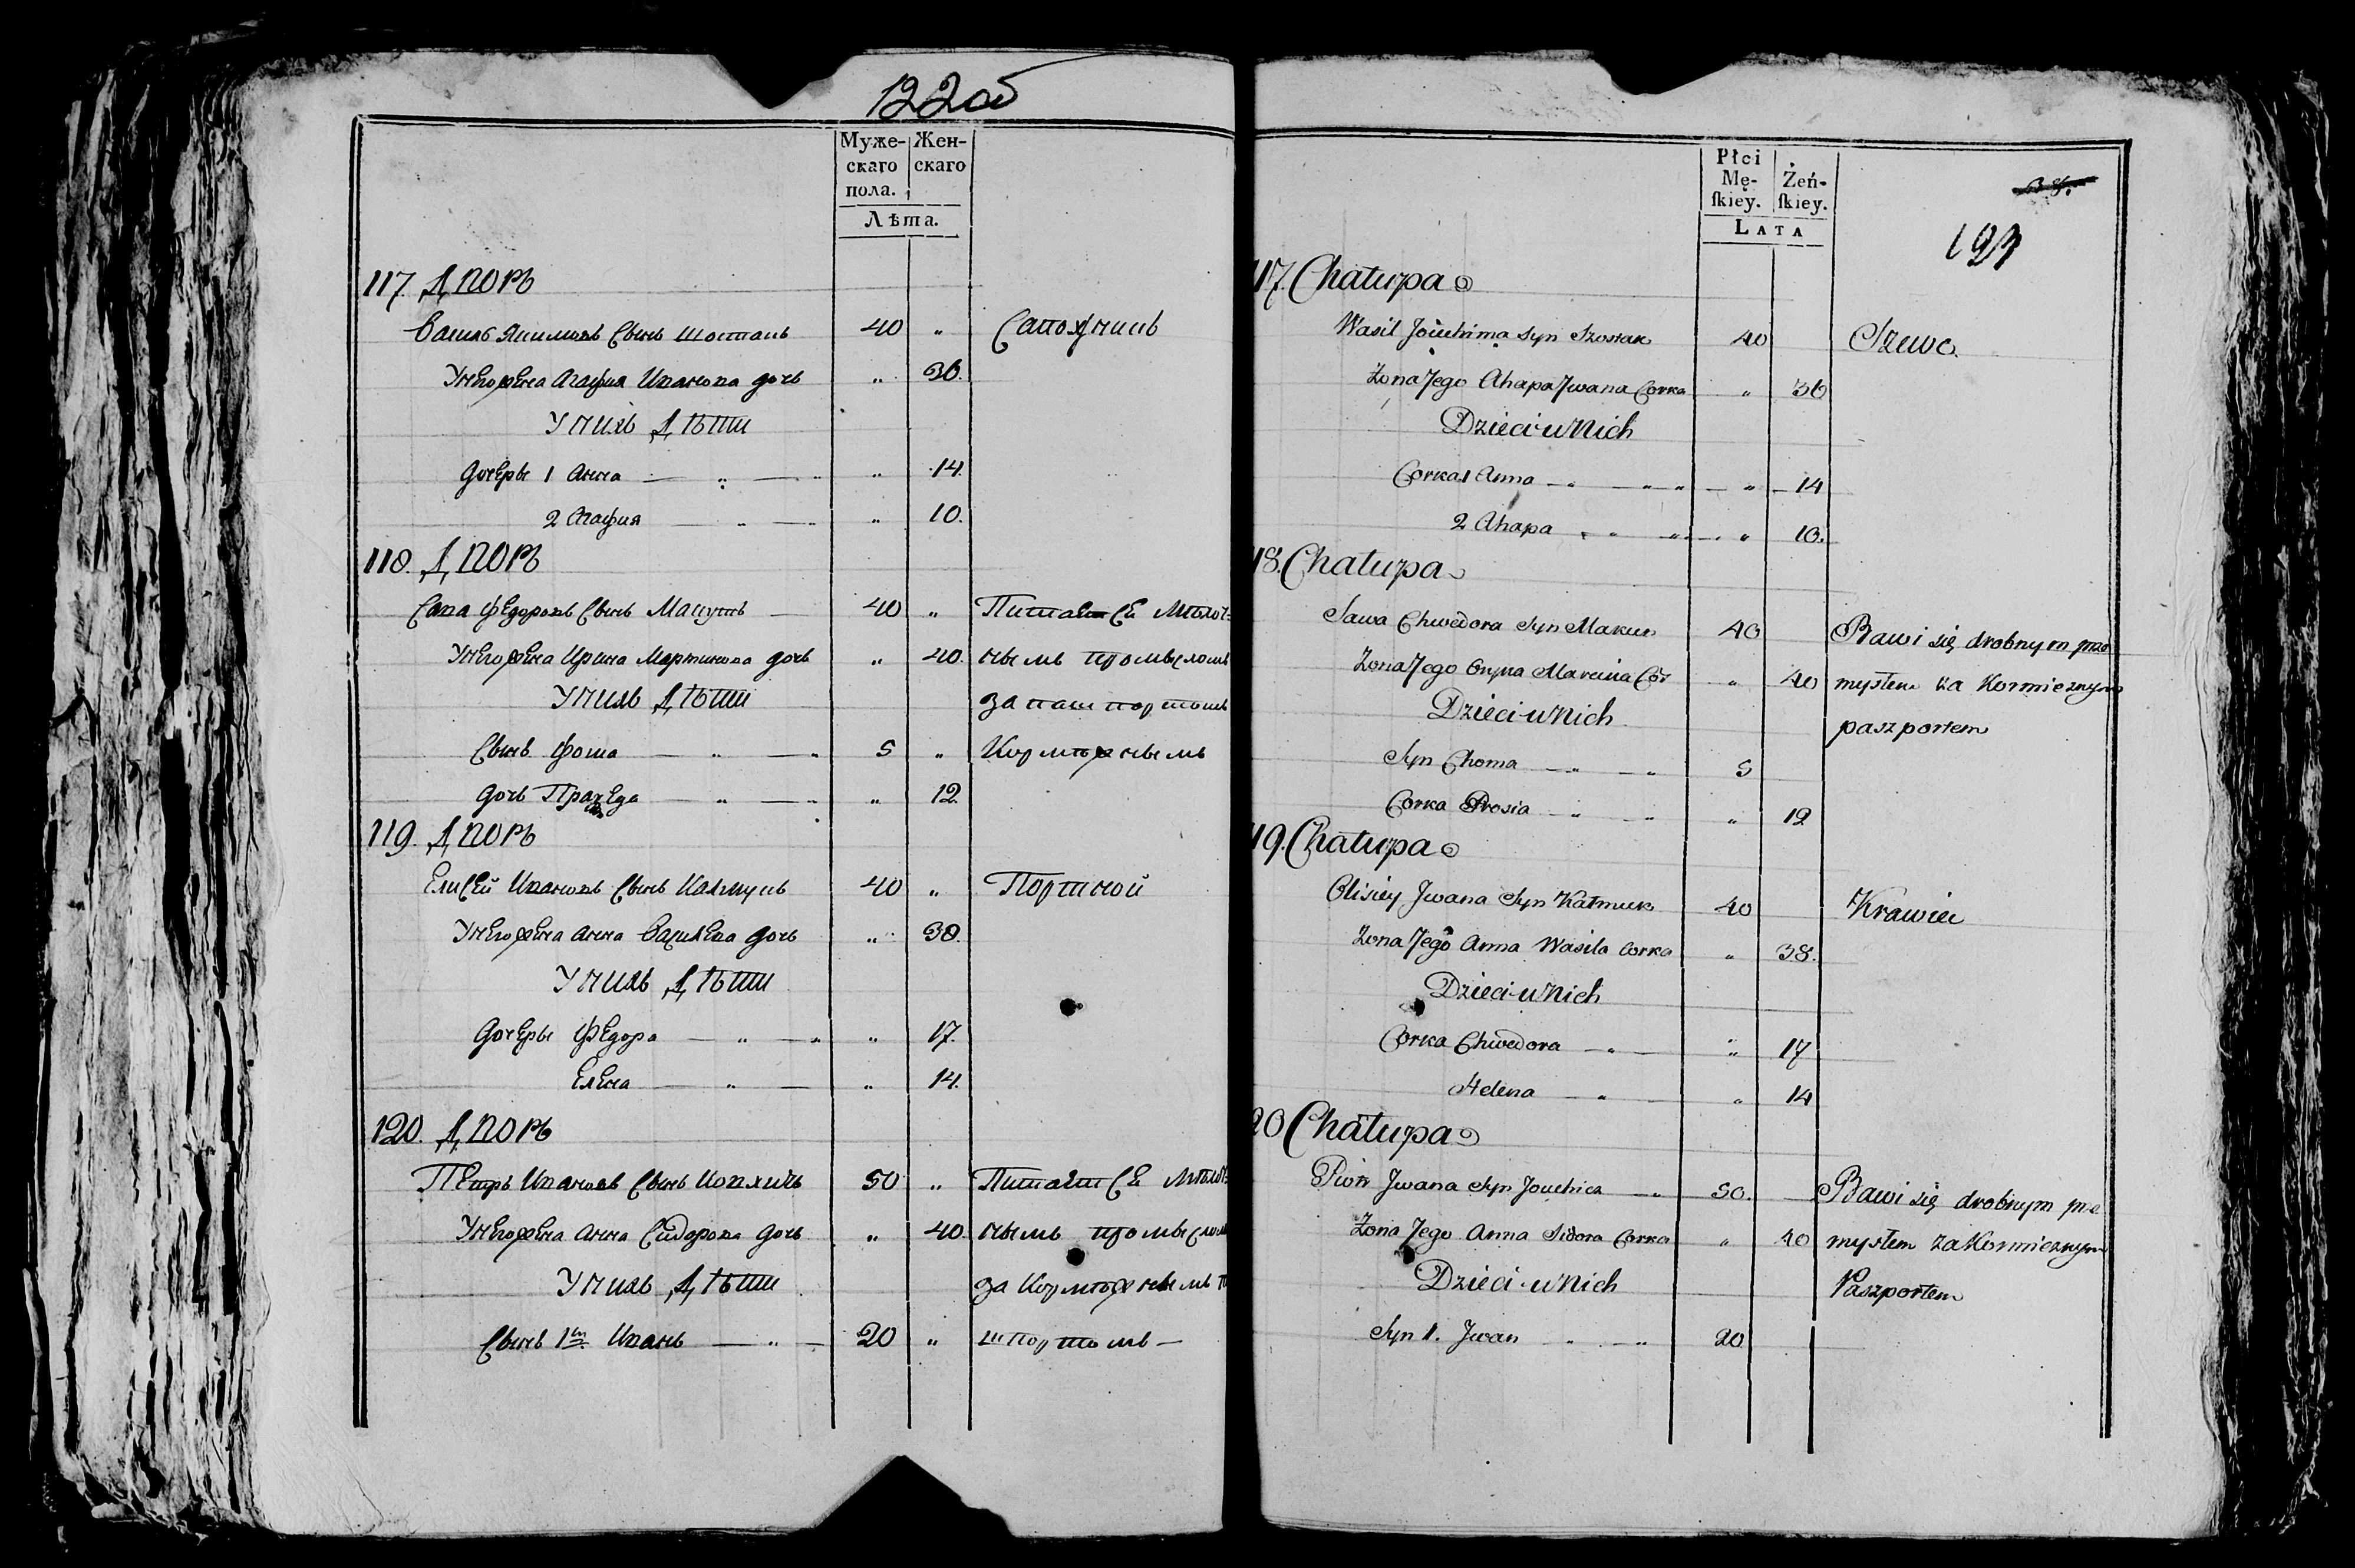 122об
Муже- Жен-
скаго скаго
пола.
Лѣта.
117. Дворъ
Василь Якимовъ Сынъ Шостакъ 40 „ Сапожникъ
У него жена Агафия Иванова дочь „ 36.
У нихъ Дѣти
Дочеры 1 Анна — „ — „ „ 14.
2 Агафия — „ — „ „ 10.
118. Дворъ
Сава Федоровъ Сынъ Макутъ — 40 „ Питает Се Мѣлоч=
У него жена Ирина Мартинова дочь „ 40. нымъ промысломъ
У нихъ Дѣти за паш портомъ
Сынъ Фома — „ — „ 5 „ Кормѣжнымъ
Дочь — „ — „ „ 12.
119. Дворъ
Елисей Ивановъ Сынъ Калмукъ 40 „ Портной
У него жена Анна Василева дочь „ 38.
У нихъ Дѣти
Дочеры Федора — „ — „ „ 17.
Елена — „ — „ 14.
120. Дворъ
Петръ Ивановъ Сынъ 50 „ Питает Се Мѣлоч=
У него жена Анна Сидорова дочь „ 40. нымъ промысломъ
У нихъ Дѣти за Кормѣжнымъ
Сынъ 1й Иванъ — „ — 20 „ шпортомъ —
Płci
Mę- Żeń-
ſkiéy. ſkiey.
LATA
117. Chałupa
Wasil Jouchima Syn Szostak 40 Szewc.
Zona Jego Ahapa Jwana Corka „ 36
Dzieci u Nich
Corka 1 Anna — „ — „ „ — „ — 14
2 Ahapa „ „ „ — „ 10.
118. Chałupa
Sawa Chwedora Syn 40 Bawi się drobnym prze
Zona Jego Oryna Marcina Cor „ 40 mysłem za Kormieznym
Dzieci u Nich paszportem
Syn Choma — „ — „ 5
Corka Prosia — „ — „ „ 12
119. Chałupa
Olisiey Jwana Syn Kałmuk 40 Krawiec
Zona Jego Anna Wasila Corka „ 38.
Dzieci u Nich
Corka Chwedora — „ — „ 17
Helena — „ — „ 14
120 Chałupa
Piotr Jwana Syn — „ 50. — Bawi się drobnym prze
Zona Jego Anna Sidora Corka „ 40 mysłem za Kormieznym
Dzieci u Nich Paszportem
Syn 1. Jwan „ „ 20